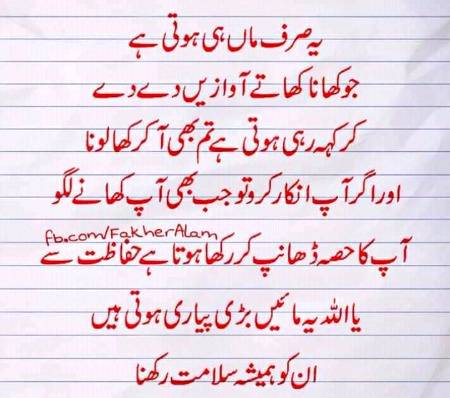 یہ صرف ماں ہی ہوتی ہے
جو کھانا کھاتے آوازیں دے دے
کر کہہ رہی ہوتی ہے تم بھی آ کر کھا لو نا
اور اگر آپ انکار کرو تو جب بھی آپ کھانے لگو
fb.com/FakherAlam
آپ کا حصہ ڈھانپ کر رکھا ہوتا ہے حفاظت سے
یا اللہ یہ مائیں بڑی پیاری ہوتی ہیں
ان کو ہمیشہ سلامت رکھنا